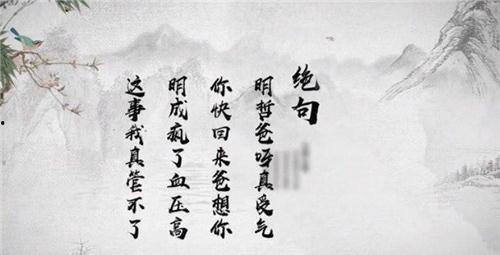 绝句
明哲爸呀真受气
你快回来爸想你
明成疯了血压高
这事我真管不了